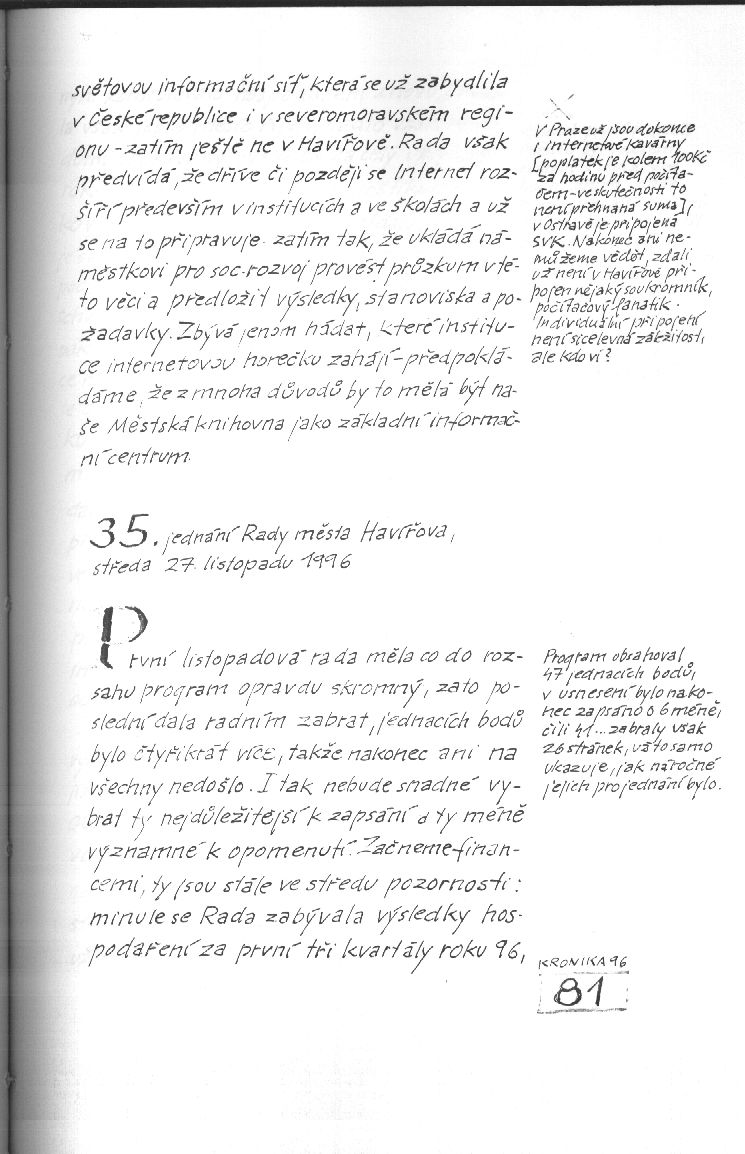 světovou informační síť, která se už zabydlila
v České republice i v severomoravském regi-
onu - zatím ještě ne v Havířově. Rada však
předvídá, že dříve či později se Internet roz-
šíří především v institucích a ve školách a už
se na to připravuje. zatím tak, že ukládá ná-
městkovi pro soc. rozvoj provést průzkum v té-
to věci a předložit výsledky, stanoviska a po-
žadavky. Zbývá jenom hádat, které institu-
ce internetovou horečku zahájí - předpoklá-
dáme, že z mnoha důvodů by to měla být na-
še Městská knihovna jako základní informač-
ní centrum.
V Praze už jsou dokonce
i internetové kavárny
[poplatek je kolem 100kč
za hodinu před počíta-
čem - ve skutečnosti to
není přehnaná suma],
v Ostravě je připojená
SVK. Nakonec ani ne-
můžeme vědět, zdali
už není v Havířově při-
pojen nějaký soukromník,
počítačový fanatik.
Individuální připojení
není sice levná záležitost,
ale kdo ví?
35. jednání Rady města Havířova,
středa 27. listopadu 1996
První listopadová rada měla co do roz-
sahu program opravdu skromný, zato po-
slední dala radním zabrat, jednacích bodů
bylo čtyřikrát více, takže nakonec ani na
všechny nedošlo. I tak nebude snadné vy-
brat ty nejdůležitější k zapsání a ty méně
významné k opomenutí. Začneme finan-
cemi, ty jsou stále ve středu pozornosti:
minule se Rada zabývala výsledky hos-
podaření za první tři kvartály roku 96,
Program obsahoval
47 jednacích bodů,
v usnesení bylo nako-
nec zapsáno o 6 méně,
čili 41... zabraly však
26 stránek, už to samo
ukazuje, jak náročné
jejich projednání bylo.
KRONIKA 96
81